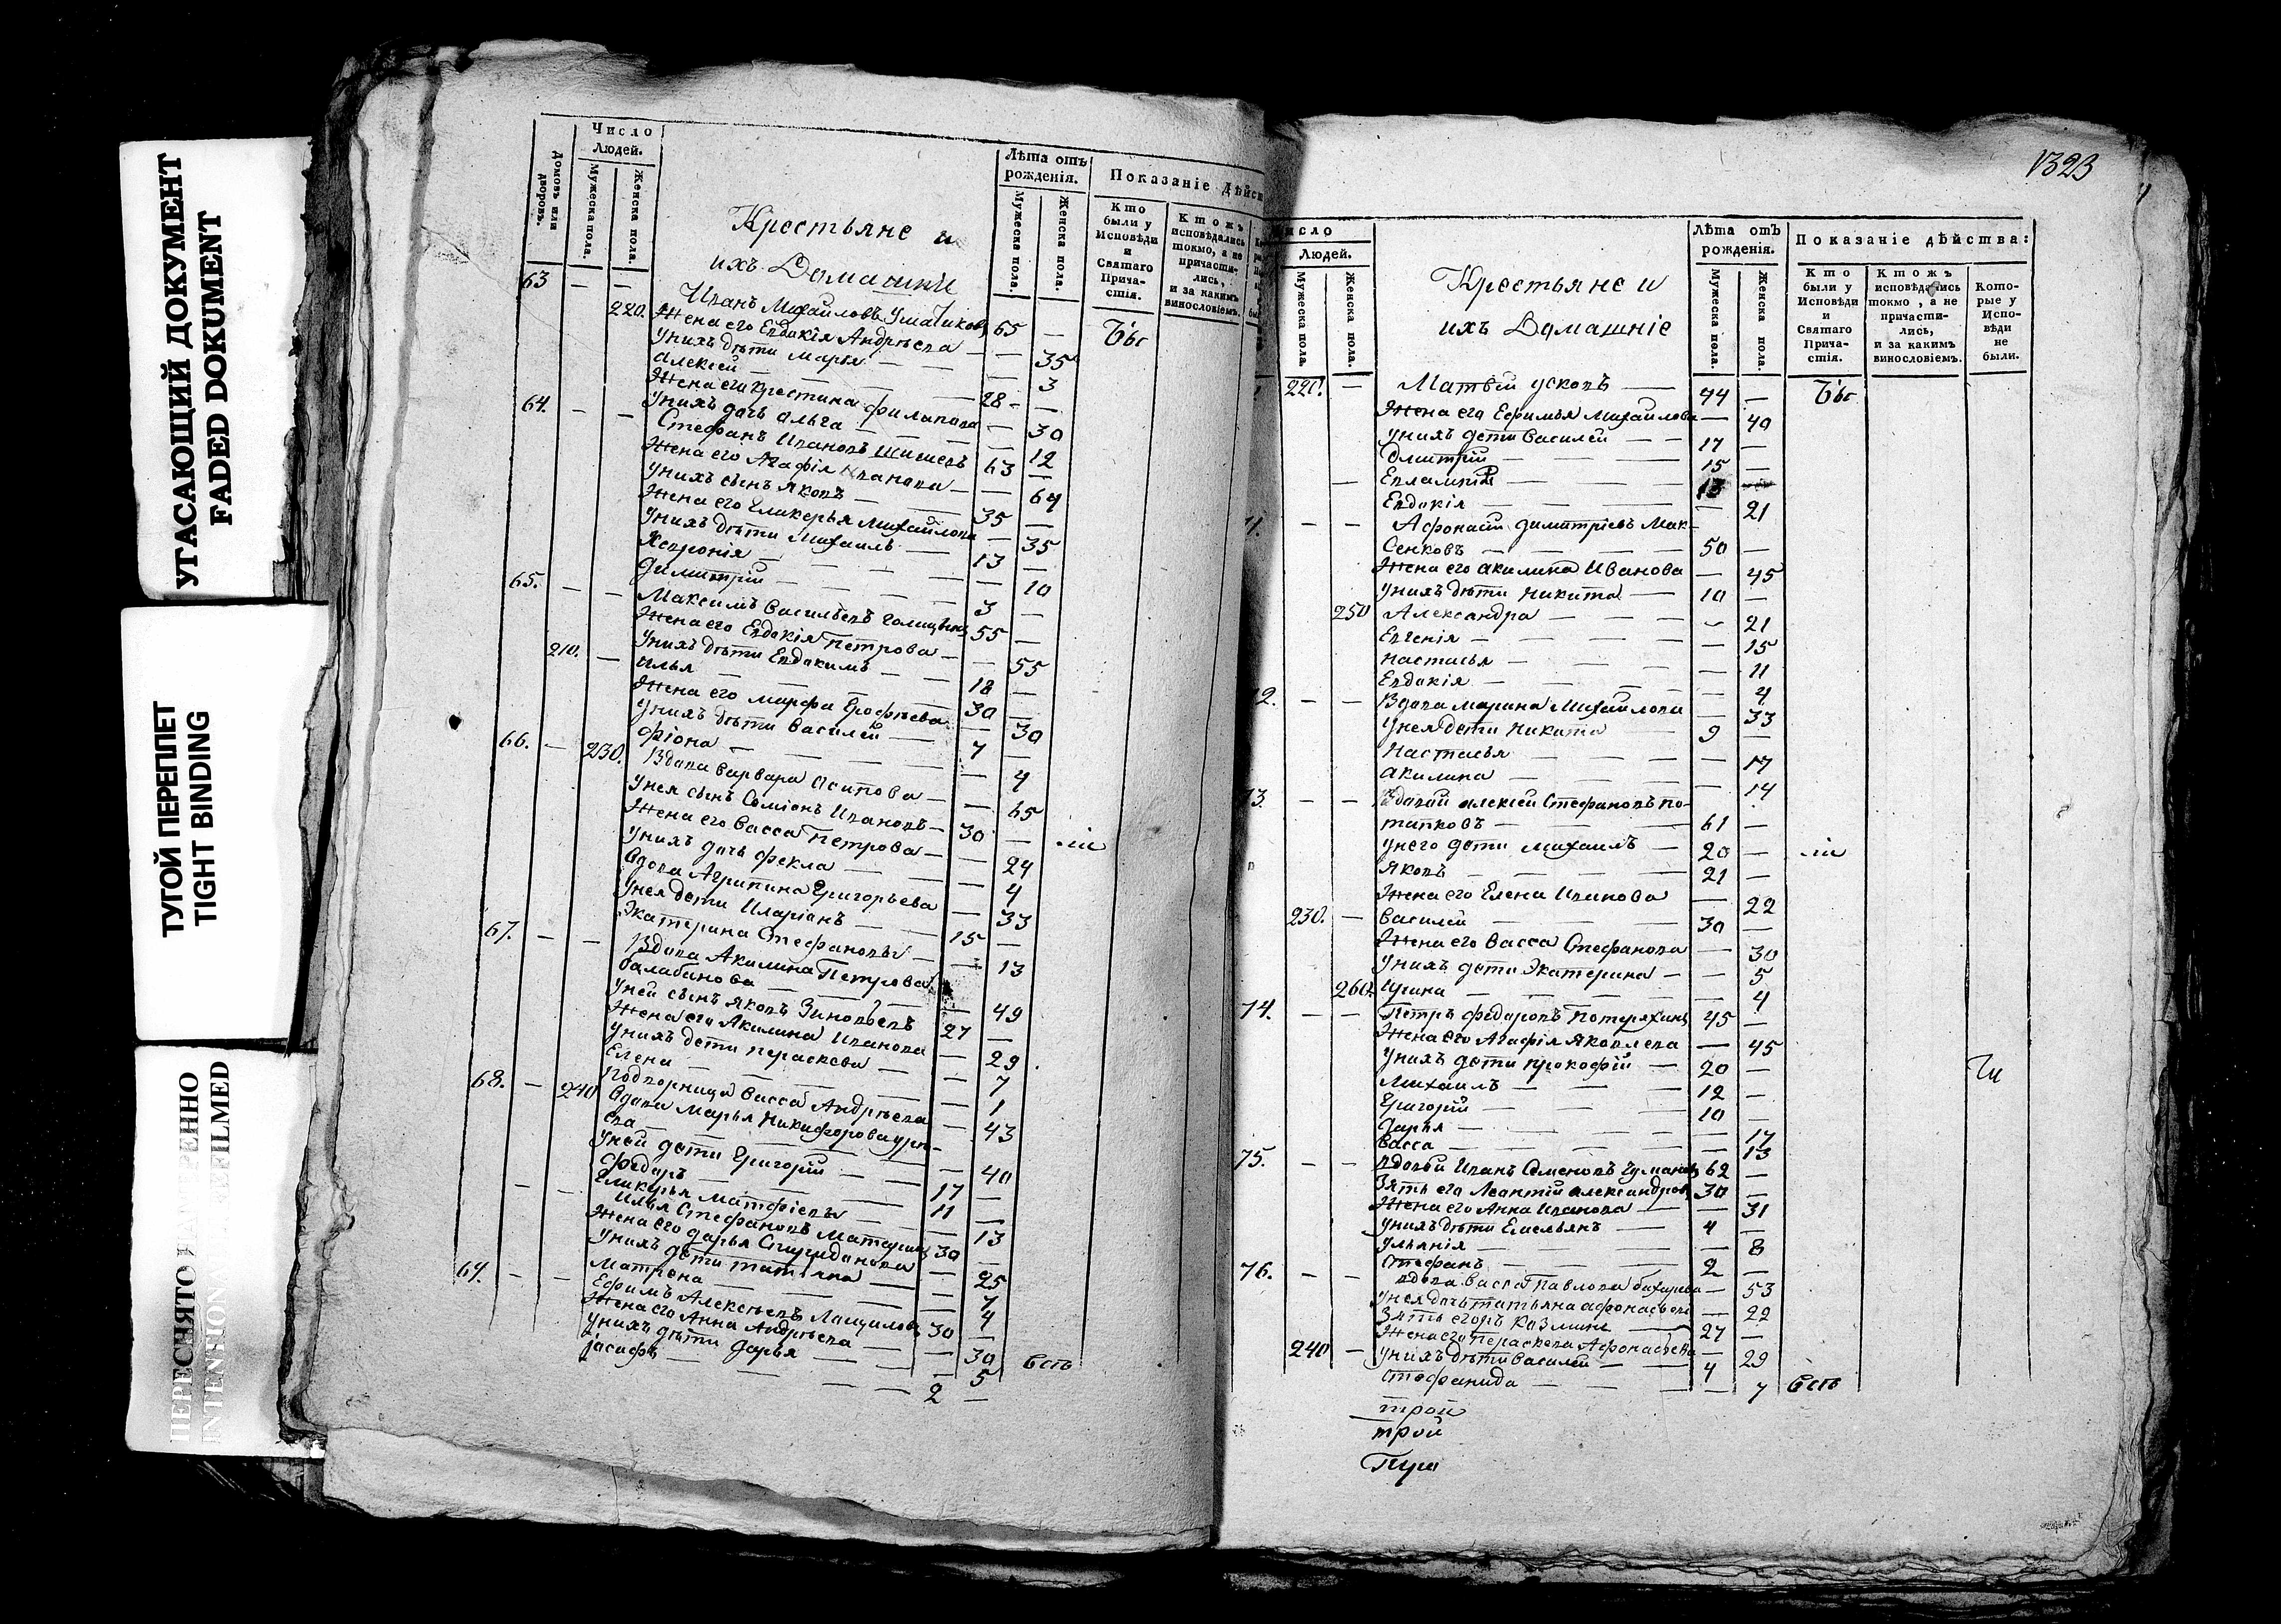 УГАСАЮЩИЙ ДОКУМЕНТ
FADED DOKUMENT
ТУГОЙ ПЕРЕПЛЕТ
TIGHT BINDING
ПЕРЕСНЯТО
INTENSION
Домовъ или дворовъ.
Число
Людей.
Мужеска пола.
Женска пола.
Крестьяне и
ихъ Домашнiи
Лѣта отъ
рожденiя.
Мужеска пола.
Женска пола.
Показанiе дѣйст
Кто
были у
Исповѣди
и
Святаго
Прича-
стiя.
Ктожъ
исповѣдались
токмо, а не
причасти-
лись,
и за какимъ
винословiемъ.
63 — —
Иванъ Михайловъ 65 —
220. Жена его Евдакiя Андрѣева — 35
Унихъ дѣти Марiя — 3
Алексей 28 —
Жена его Кристина Филипова — 30
Унихъ дочь Альга — 12
64. — — Стефанъ Ивановъ Шишевъ 63 —
Жена его Агафiя Иванова — 64
Унихъ сынъ Яковъ 35 —
Жена его Гликерья Михайлова — 35
Унихъ дѣти Михаилъ 13 —
— 10
Димитрiй 3 —
65. — — Максимъ Васильевъ Голицынъ 55 —
Жена его Евдакiя Петрова — 55
Унихъ дѣти Евдакимъ 18 —
210. — Илья 30 —
Жена его Марфа Ерофѣева — 30
Унихъ дѣти Василей 7 —
Фiона — 4
66. — 230. Вдова Варвара Осипова — 65
Унея сынъ Семiонъ Ивановъ 30 —
Жена его Васса Петрова — 24
Унихъ дочь Фекла — 4
Вдова Агрипина Григорьева — 33
Унея дети Иларiанъ 15 —
Екатерина Стефановы — 13
67. — — Вдова Акилина Петрова
Балабанова — 49
Уней сынъ Яковъ Зиновьевъ 27 —
Жена его Акилина Иванова — 29
Унихъ дети Пераскева — 7
Елена — 1
Подворница Васса Андрѣева — 43
68. — 240 Вдова Марья Никифорова
ева — 40
Уней дети Григорiй 17 —
Федаръ 11 —
Гликерья Матфiевы — 13
— — Илья Стефановъ 30 —
Жена его Дарья Спиридонова — 25
Унихъ дети Татiяна — 7
Матрона — 4
69. — — Ефимъ Алексѣевъ Лащиловъ 30 —
Жена его Анна Андрѣева — 30
Унихъ дѣти Дарья — 5
Iасифъ 2 —
1323
Число
Людей.
Мужеска пола.
Женска пола.
Крестьяне и
ихъ Домашнiе
Лѣта отъ
рожденiя.
Мужеска пола.
Женска пола.
Показанiе дѣйства:
Кто
были у
Исповѣди
и
Святаго
Прича-
стiя.
Ктожъ
исповѣдались
токмо, а не
причасти-
лись,
и за какимъ
винословiемъ.
Кото-
рые у
Испо-
вѣди
не
были.
220. — Матвѣй 44 —
Жена его Ефимья Михайлова — 40
Унихъ дети Василей 17 —
Дмитрiй 15 —
Евлампiй 13
Евдакiя — 21
71. — — Афонасiй Димитрiевъ Мак-
сенковъ 50 —
Жена его Акилина Иванова — 45
Унихъ дѣти Никита 10 —
250 Александра — 21
Евгенiя — 15
Настасья — 11
Евдакiя — 4
72. — — Вдова Марина Михайлова — 33
Унея дети Никита 9 —
Настасья — 17
Акилина — 14
73. — — Вдовый Алексей Стефановъ По-
тапковъ 61 —
Унего дети Михаилъ 20 —
Яковъ 21 —
Жена его Елена Иванова — 22
230. — Василей 30 —
Жена его Васса Стефанова — 30
Унихъ дети Екатерина — 5
260. Ирина — 4
74. — — Петръ Федаровъ Потеряхинъ 45 —
Жена его Агафiя Яковлева — 45
Унихъ дети Прокофiй 20 —
Михаилъ 12 —
Григорiй 10 —
Дарья — 17
Васса — 13
75. — — Вдовый Иванъ Семеновъ 62 —
Зять его Леантiй Александровъ 30 —
Жена его Анна Иванова — 31
Унихъ дѣти Емельянъ 4 —
Ульянiя — 8
Стефанъ 2 —
76. — — Вдова Васса Павлова — 53
Унея дочь Татьяна Афонасьева — 22
Зять Егоръ Казминъ 27 —
Жена его Пераскева Афонасьева — 29
240 — Унихъ дѣти Василей 4 —
Стефанида — 7
трой
трой